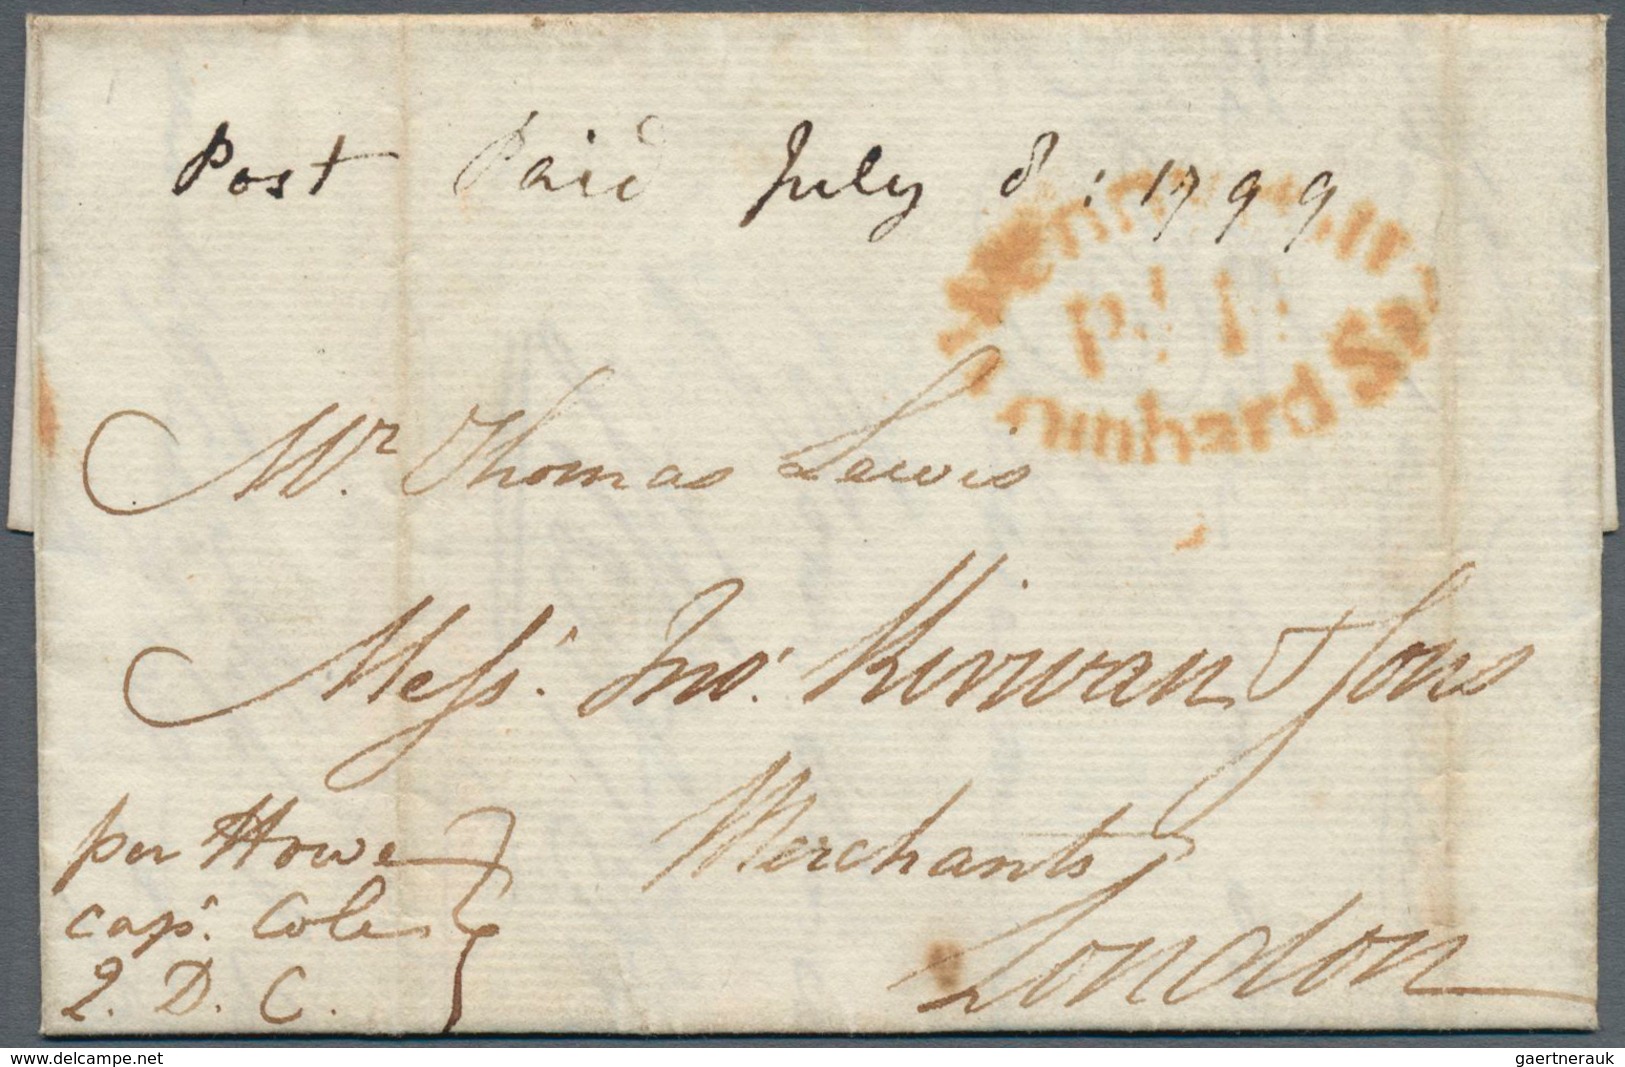 Post Paid July 8 : 1799
Lombard St
Mr. Thomas Lewis
Messr. Jno. Kirwan & Sons
Merchants
London
per Howe
capt. Cole
2. D. C.
www.delcampe.net
gaertnerauk